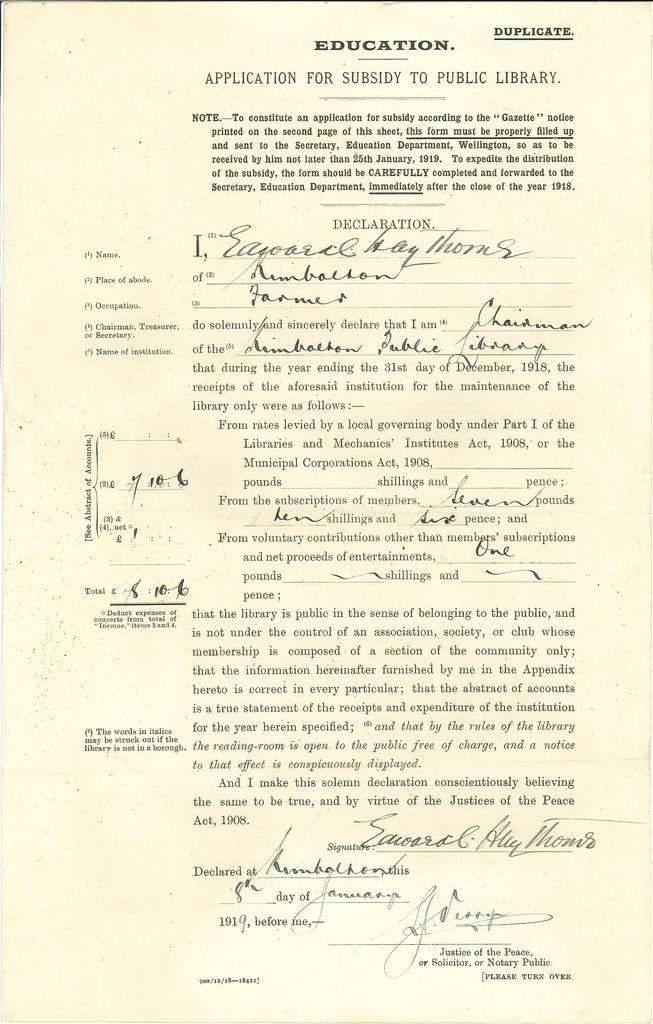 DUPLICATE.
EDUCATION.
APPLICATION FOR SUBSIDY TO PUBLIC LIBRARY.
NOTE.—To constitute an application for subsidy according to the "Gazette" notice
printed on the second page of this sheet, this form must be properly filled up
and sent to the Secretary, Education Department, Wellington, so as to be
received by him not later than 25th January, 1919. To expedite the distribution
of the subsidy, the form should be CAREFULLY completed and forwarded to the
Secretary, Education Department, immediately after the close of the year 1918.
DECLARATION.
(1) Name.
I, (1) Edward C. Hay Thorne
(2) Place of abode.
of (2) Kimbolton
(3) Occupation.
(3) Farmer
(4) Chairman, Treasurer,
or Secretary.
do solemnly and sincerely declare that I am (4) Chairman
(5) Name of institution.
of the (5) Kimbolton Public Library
that during the year ending the 31st day of December, 1918, the
receipts of the aforesaid institution for the maintenance of the
library only were as follows :—
[See Abstract of Accounts.]
(5) £ : :
(2) £ 7 : 10 : 6
(3) &
(4), net *
£ 1 : :
Total £ 8 : 10 : 6
* Deduct expenses of
concerts from total of
"Income," items 3 and 4.
From rates levied by a local governing body under Part I of the
Libraries and Mechanics' Institutes Act, 1908, or the
Municipal Corporations Act, 1908,
pounds shillings and pence ;
From the subscriptions of members, seven pounds
ten shillings and six pence ; and
From voluntary contributions other than members' subscriptions
and net proceeds of entertainments, One
pounds shillings and
pence ;
that the library is public in the sense of belonging to the public, and
is not under the control of an association, society, or club whose
membership is composed of a section of the community only;
that the information hereinafter furnished by me in the Appendix
hereto is correct in every particular; that the abstract of accounts
is a true statement of the receipts and expenditure of the institution
for the year herein specified; (6) and that by the rules of the library
the reading-room is open to the public free of charge, and a notice
to that effect is conspicuously displayed.
(6) The words in italics
may be struck out if the
library is not in a borough.
And I make this solemn declaration conscientiously believing
the same to be true, and by virtue of the Justices of the Peace
Act, 1908.
Signature: Edward C. Hay Thorne
Declared at Kimbolton, this
8th day of January
1919, before me,—
Justice of the Peace,
or Solicitor, or Notary Public.
900/12/18—18421]
[PLEASE TURN OVER.